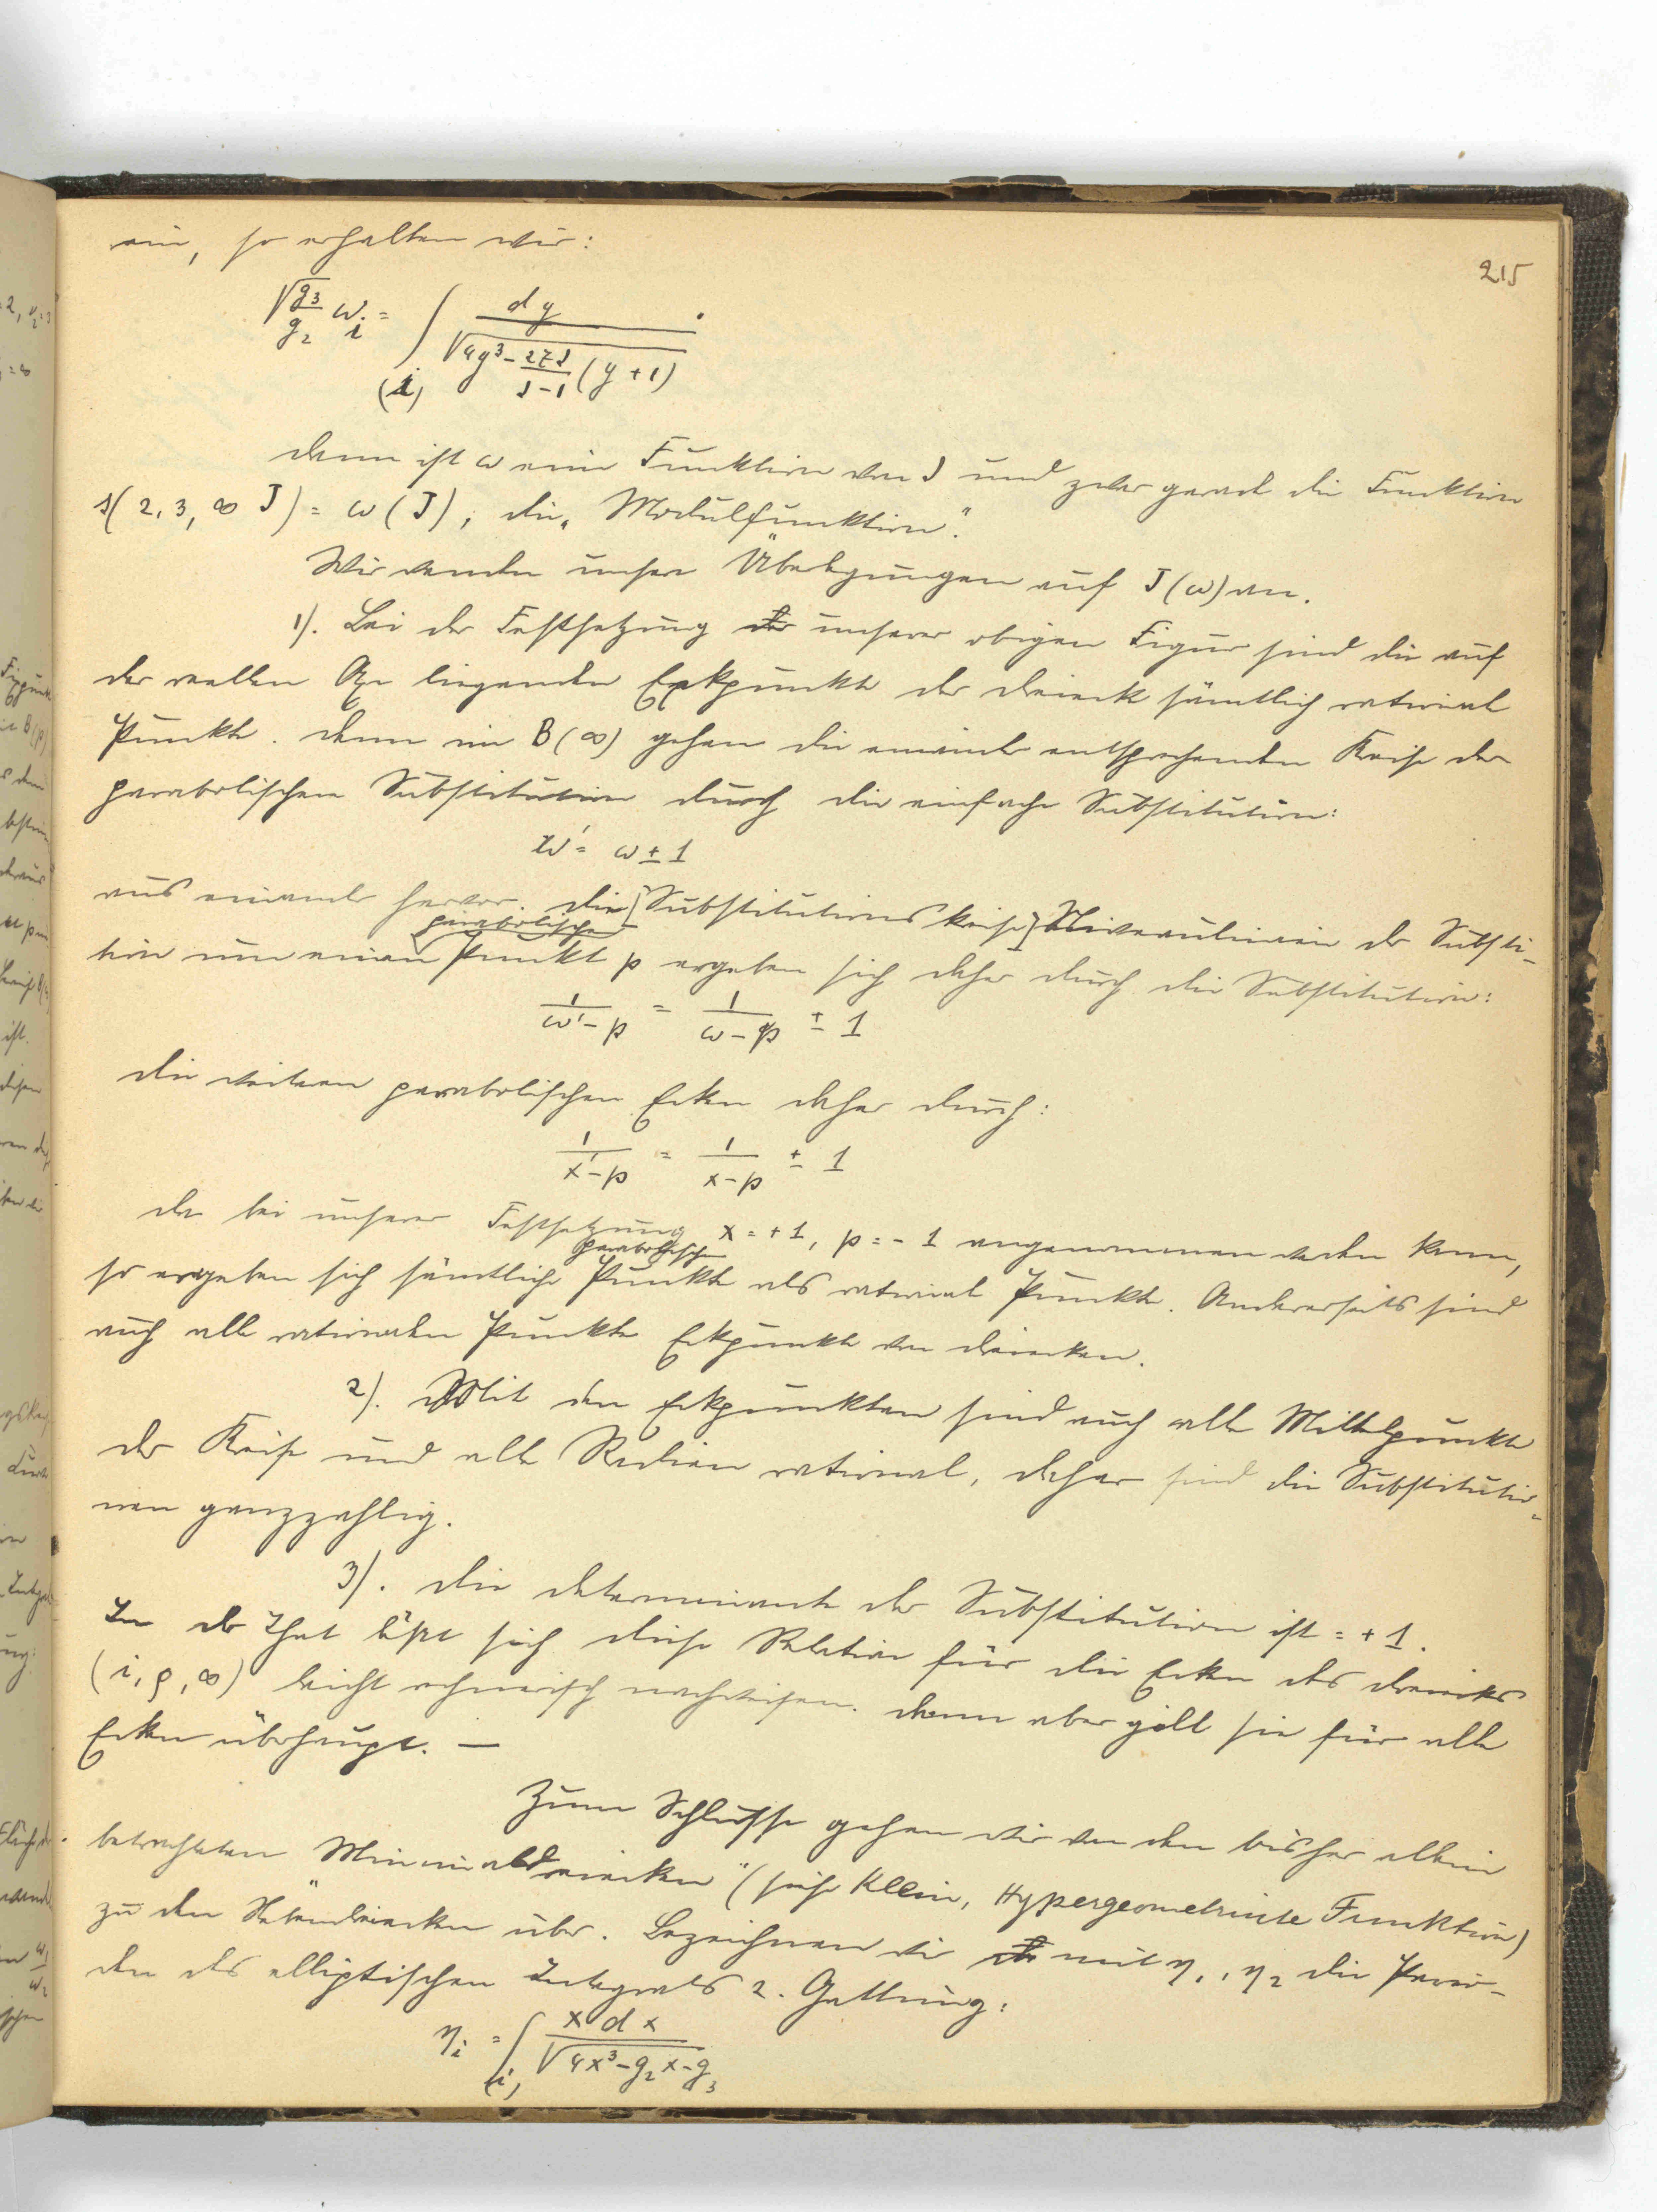 215
ein, so erhalten wir:
√g3/g2 ωi = ∫(i) dy / √(4y³ - 27J/(J-1) (y+1))
dann ist ω eine Funktion von J und zwar gerade die Funktion
s(2, 3, ∞ J) = ω(J), die „Modulfunktion".
Wir wenden unsere Überlegungen auf J(ω) an.
1). Bei der Festsetzung unserer obigen Figur sind die auf
der reellen Axe liegenden Eckpunkte der Dreiecke sämtlich rationale
Punkte. Denn in B(∞) gehen die einander entsprechenden Kreise der
parabolischen Substitution durch die einfache Substitution:
ω' = ω ± 1
aus einander hervor. Die [Substitutionskreise] Niveaulinien der Substi-
tion um einen parabolischen Punkt p ergeben sich daher durch die Substitution:
1/(ω'-p) = 1/(ω-p) ± 1
die weiteren parabolischen Ecken daher durch:
1/(x'-p) = 1/(x-p) ± 1
da bei unserer Festsetzung x = +1, p = -1 angenommen werden kann,
so ergeben sich sämtliche parabolische Punkte als rationale Punkte. Andererseits sind
auch alle rationalen Punkte Eckpunkte von Dreiecken.
2). Mit den Eckpunkten sind auch alle Mittelpunkte
der Kreise und alle Radien rational, daher sind die Substitutio-
nen ganzzahlig.
3). Die Determinante der Substitution ist = +1.
In der That läßt sich diese Relation für die Ecken des Dreiecks
(i, ρ, ∞) leicht rechnerisch nachweisen. Dann aber gilt sie für alle
Ecken überhaupt. —
Zum Schlusse gehen wir von den bisher allein
betrachteten „Minimaldreiecken" (siehe Klein, Hypergeometrische Funktion)
zu den Nebendreiecken über. Bezeichnen wir mit η1, η2 die Perio-
den des elliptischen Integrals 2. Gattung:
ηi = ∫(i) x dx / √(4x³ - g2x - g3)